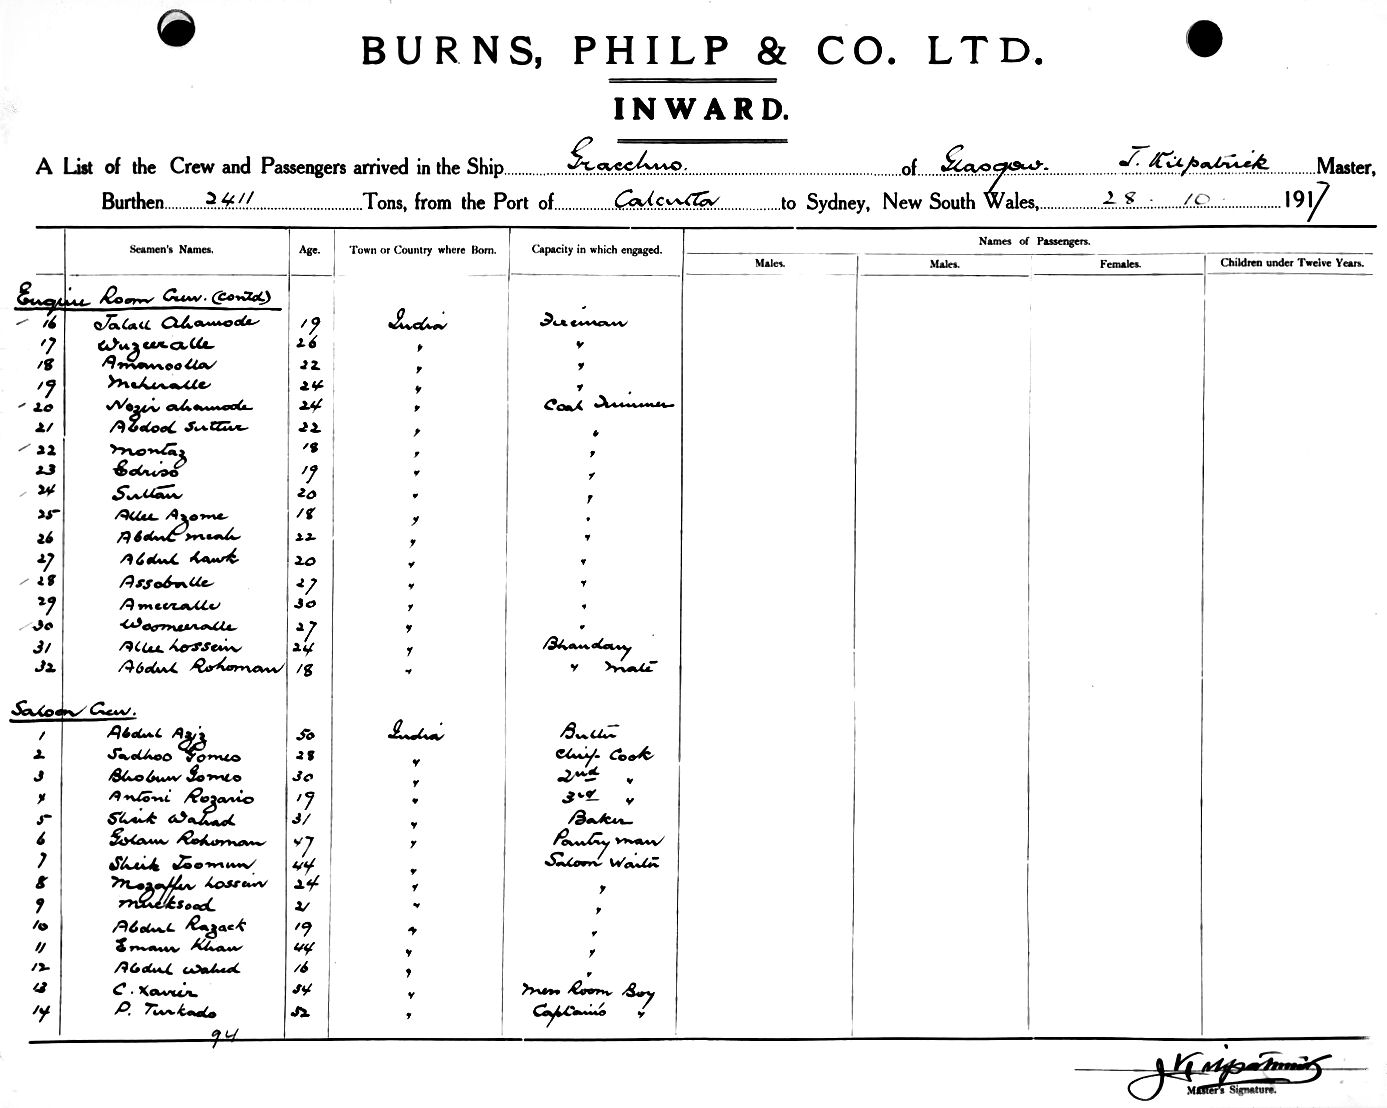 BURNS, PHILP & CO. LTD.
INWARD.
A List of the Crew and Passengers arrived in the Ship Gracchus. of Glasgow. J. Kilpatrick Master,
Burthen 2411 Tons, from the Port of Calcutta to Sydney, New South Wales, 28 . 10 . 1917
Names of Passengers.
Seamen's Names. Age. Town or Country where Born. Capacity in which engaged.
Males. Males. Females. Children under Twelve Years.
Engine Room Crew. (contd)
16 Jalall Ahamode 19 India Fireman
17 Wuzeeralle 26 " "
18 Amanoolla 22 " "
19 Meheralle 24 " "
20 Nozir ahamode 24 " Coal Trimmer
21 Abdod Suttur 22 " "
22 Montaz 18 " "
23 Edriso 19 " "
24 Sultan 20 " "
25 Allee Azome 18 " "
26 Abdul meah 22 " "
27 Abdul hawk 20 " "
28 Assoballe 27 " "
29 Ameeralle 30 " "
30 Woomeeralle 27 " "
31 Allee hossein 24 " Bhandary
32 Abdul Rohoman 18 " " Mate
Saloon Crew.
1 Abdul Aziz 50 India Butler
2 Sadhoo Gomes 28 " Chief Cook
3 Bhobun Gomes 30 " 2nd "
4 Antoni Rozario 19 " 3rd "
5 Sheik Wahad 31 " Baker
6 Golam Rohoman 47 " Pantry man
7 Sheik Toomun 44 " Saloon Waiter
8 Mozaffer hossein 24 " "
9 Mucksood 21 " "
10 Abdul Razack 19 " "
11 Emam Khan 44 " "
12 Abdul Wahed 16 " "
13 C. Xavier 34 " Mess Room Boy
14 P. Turkado 52 " Captain's "
94
J Kilpatrick
Master's Signature.